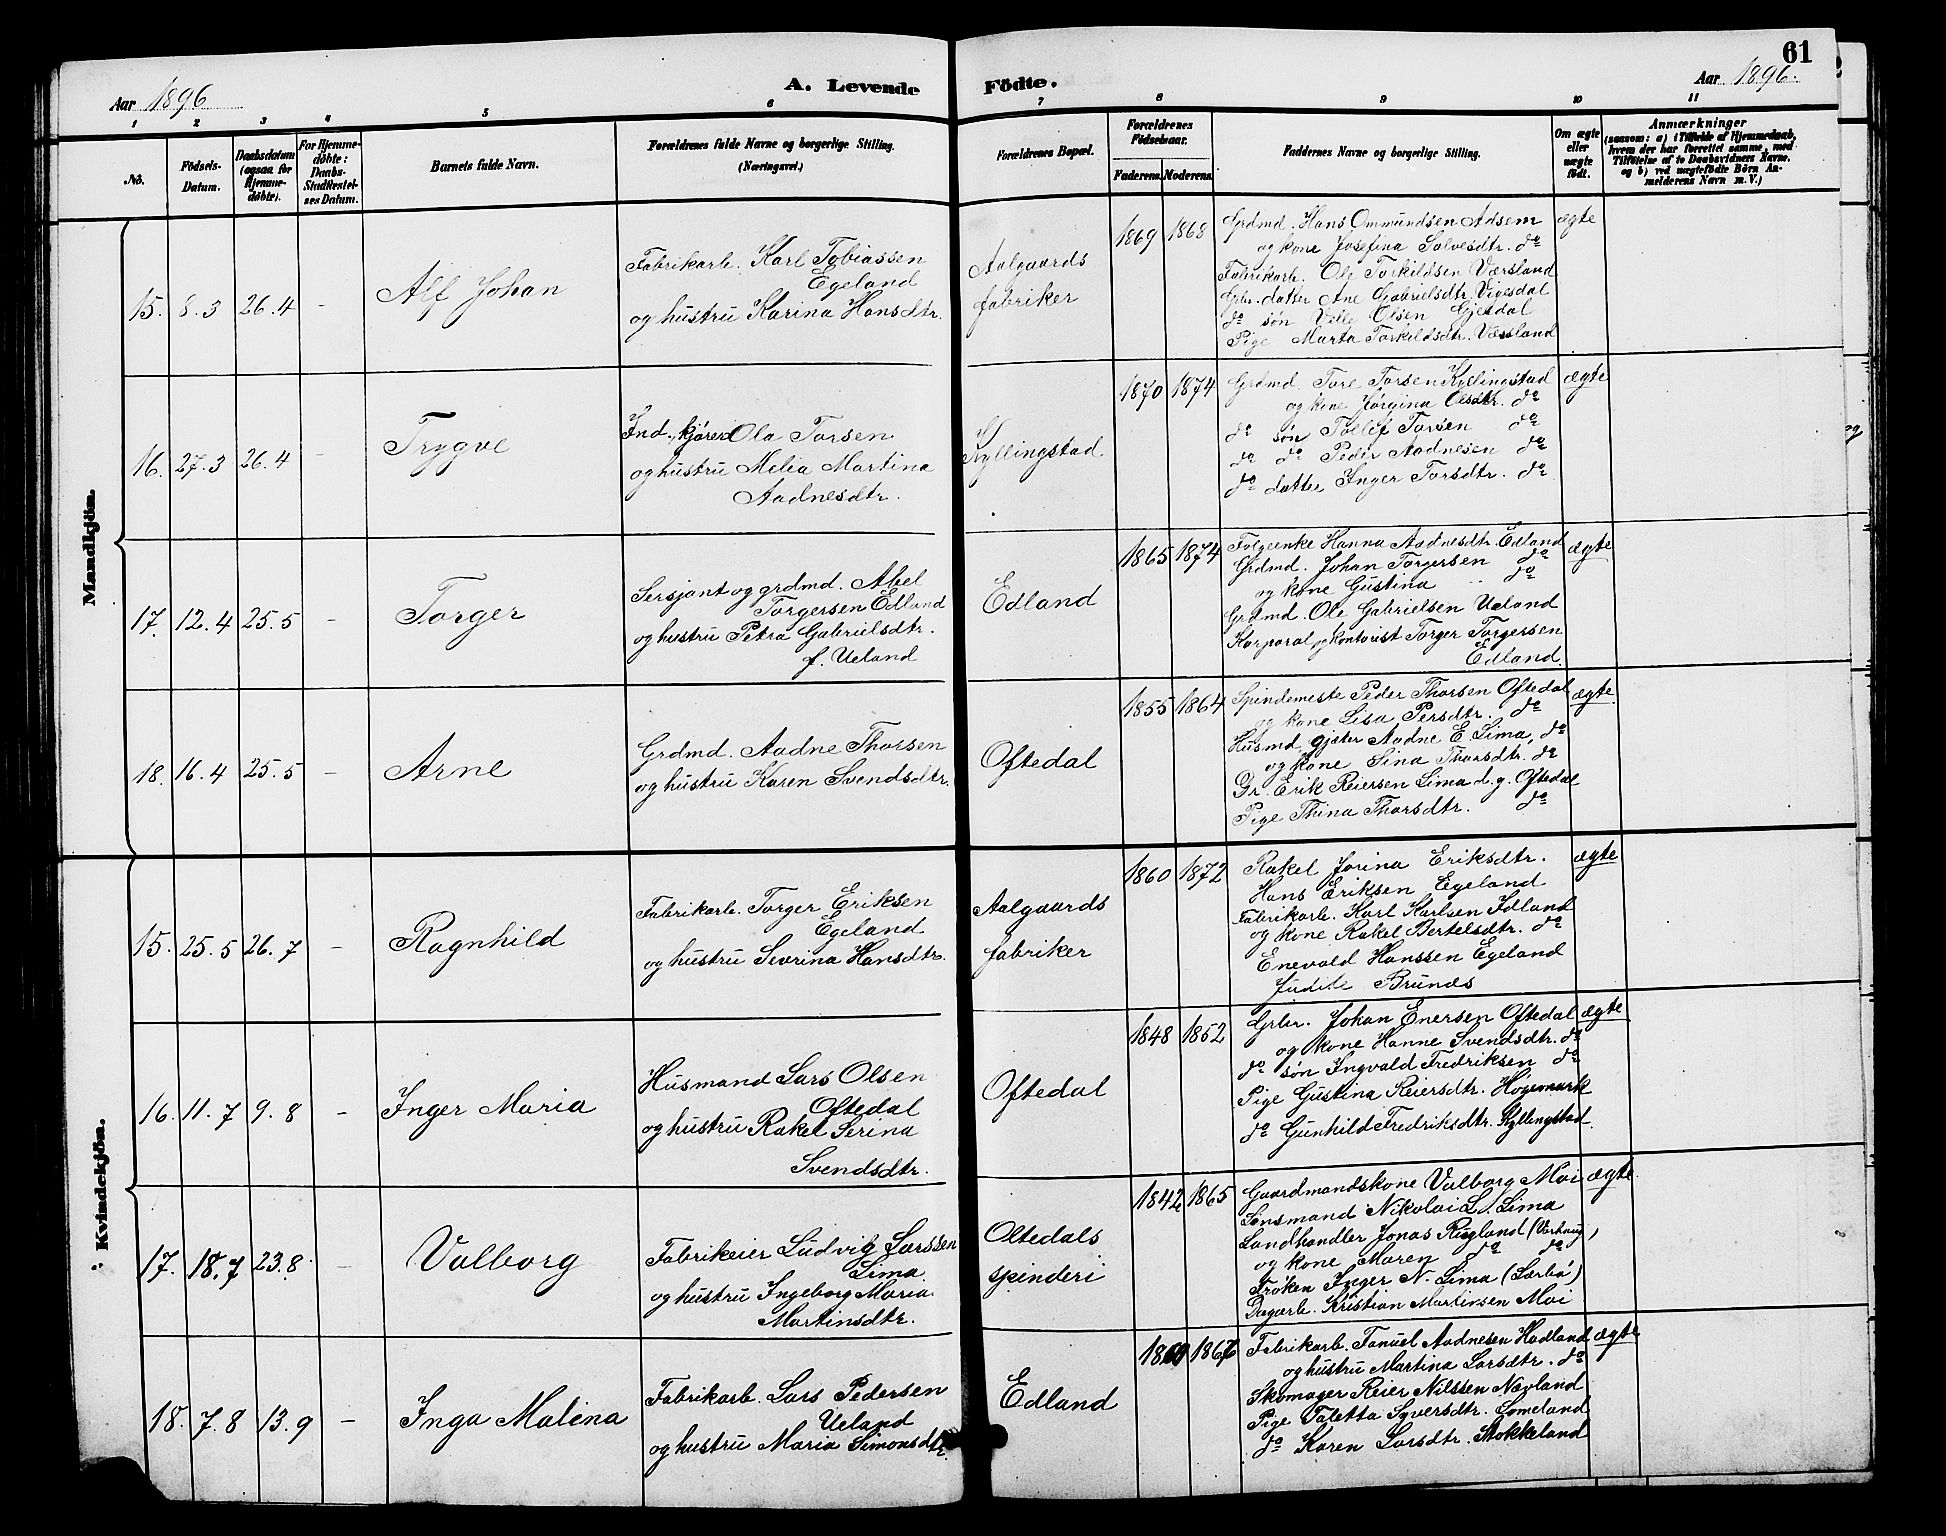 61
Aar 1896
A. Levende
Födte.
Aar 1896.
1 2 3 4 5 6 7 8 9 10 11
No.
Födsels-
Datum.
Daabsdatum
(ogsaa for
Hjemme-
döbte).
For Hjemme-
döbte:
Daabs-
Stadfæstel-
ses Datum.
Barnets fulde Navn.
Forældrenes fulde Navne og borgerlige Stilling.
(Næringsvei.)
Forældrenes Bopæl.
Forældrenes
Födselsaar.
Faderens. Moderens.
Faddernes Navne og borgerlige Stilling.
Om ægte
eller
uægte
födt.
Anmærkninger
(saasom: a) i Tilfælde af Hjemmedaab,
hvem der har forrettet samme, med
Tilföielse af to Daabsvidners Navne.
og b) ved uægtefödte Börn An-
melderens Navn m. V.)
Mandkjön.
15. 8.3 26.4 - Alf Johan
Fabrikarb. Karl Tobiassen
Egeland
og hustru Karina Hansdtr.
Aalgaards
fabriker
1869 1868
Grdmd. Hans Ommundsen Adsem
og kone Josefina Salvesdtr. do
Fabrikarb. Ole Torkildsen Værsland
Gbr. datter Ane Gabrielsdtr. Vigesdal
do søn Ville Olsen Gjesdal
Pige Marta Torkildsdtr. Værsland
ægte
16. 27.3 26.4 - Trygve
Ind., kjører Ola Torsen
og hustru Melia Martina
Aadnesdtr.
Kyllingstad
1870 1874
Grdmd. Tore Torsen Kyllingstad
og kone Jørgina Olsdtr. do
do søn Tollef Torsen do
do do Peder Aadnesen do
do datter Inger Torsdtr. do
ægte
17. 12.4 25.5 - Torger
Sersjant og grdmd. Abel
Torgersen Edland
og hustru Petra Gabrielsdtr.
f. Ueland
Edland
1865 1874
Folgeenke Hanna Aadnesdtr. Edland
Grdmd. Johan Torgersen do
og kone Gustina do
Grdmd. Ole Gabrielsen Ueland
Korporal og kontorist Torger Torgersen
Edland
ægte
18. 16.4 25.5 - Arne
Grdmd. Aadne Thorsen
og hustru Karen Svendsdtr.
Oftedal
1855 1864
Spindemeste Peder Thorsen Oftedal
og kone Lisa Persdtr. do
Husmd, gjæter Aadne E. Lima, do
og kone Sina Thorsdtr. do
Dr. Erik Reiersen Lima d.y. Oftedal
Pige Thina Thorsdtr. do
ægte
Kvindekjön.
15. 25.5 26.7 - Ragnhild
Fabrikarb. Torger Eriksen
Egeland
og hustru Sevrina Hansdtr.
Aalgaards
fabriker
1860 1872
Rakel Jorina Eriksdtr.
Hans Eriksen Egeland
Fabrikarb. Karl Karlsen Idland
og kone Rakel Bertelsdtr. do
Enevald Hanssen Egeland
Judite Brunæs
ægte
16. 11.7 9.8 - Inger Maria
Husmand Lars Olsen
Oftedal
og hustru Rakel Serina
Svendsdtr.
Oftedal
1848 1852
Grbr. Johan Enersen Oftedal
og kone Hanne Svendsdtr. do
do søn Ingvald Fredriksen do
Pige Gustina Reiersdtr. Hogemark
do Gunhild Fredriksdtr. Kyllingstad.
ægte
17. 18.7 23.8 - Valborg
Fabrikeier Ludvig Larssen
Lima
og hustru Ingeborg Maria
Martinsdtr.
Oltedals
spinderi
1842 1865
Gaardmandskone Valborg Moi
Lensmand Nikolai L. Lima
Landhandler Jonas Rugland (Varhaug)
og kone Maren do do
Frøken Inger N. Lima (Særbø)
Dagarb. Kristian Martinsen Moi
ægte
18. 7.8 13.9 - Inga Malena
Fabrikarb. Lars Pedersen
Ueland
og hustru Maria Simonsdtr.
Edland
1867
Fabrikarb. Tanuel Aadnesen Hadland
og hustru Martina Larsdtr. do
Skomager Reier Nilssen Nævland
Pige Taletta Syversdtr. Lomeland
do Karen Larsdtr. Stokkeland
ægte